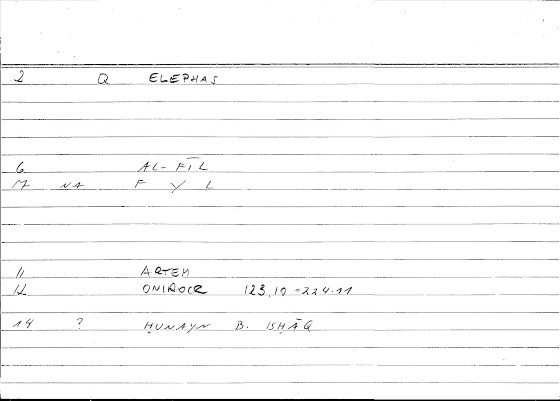 2 Q ELEPHAS
6 AL-FĪL
17 NA F Y L
11 ARTEM
12 ONIROCR 123,10=224.11
14 ? ḤUNAYN B. ISḤĀQ